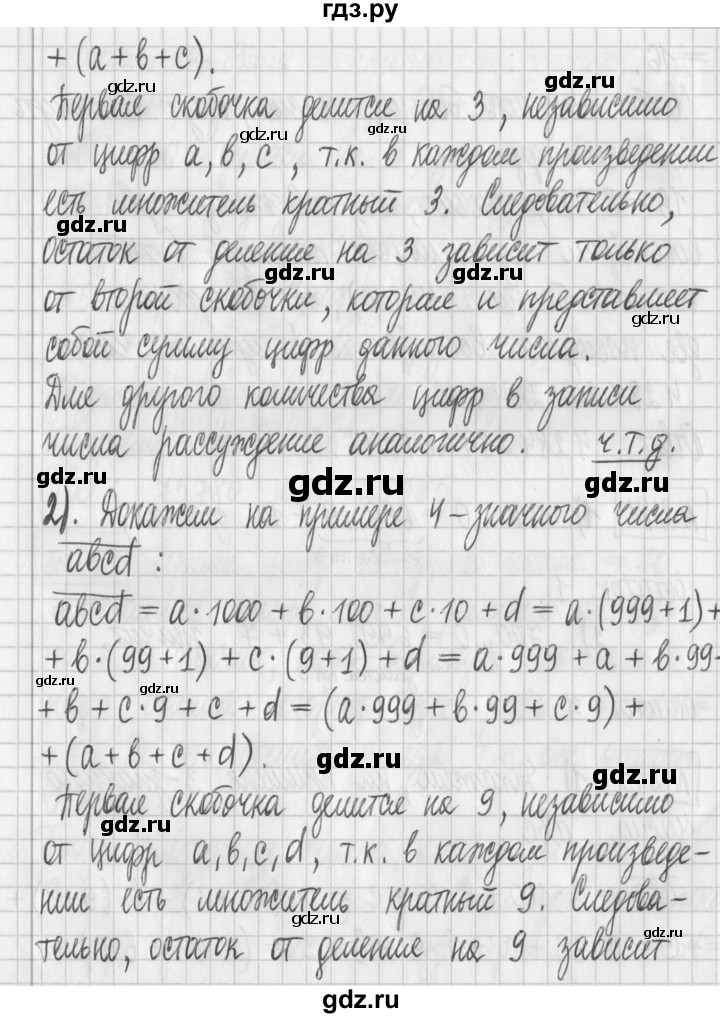 гдз.ру
+(a+b+c).
Первая скобочка делится на 3, независимо
от цифр a, b, c, т.к. в каждом произведении
есть множитель кратный 3. Следовательно,
остаток от деления на 3 зависит только
от второй скобочки, которая и представляет
собой сумму цифр данного числа.
Для другого количества цифр в записи
числа рассуждение аналогично. ч.т.д.
2). Докажем на примере 4-значного числа
abcd :
abcd = a·1000 + b·100 + c·10 + d = a·(999+1)+
+ b·(99+1) + c·(9+1) + d = a·999 + a + b·99+
+ b + c·9 + c + d = (a·999 + b·99 + c·9) +
+ (a+b+c+d).
Первая скобочка делится на 9, независимо
от цифр a, b, c, d, т.к. в каждом произведе-
нии есть множитель кратный 9. Следова-
тельно, остаток от деления на 9 зависит
gdz.ru